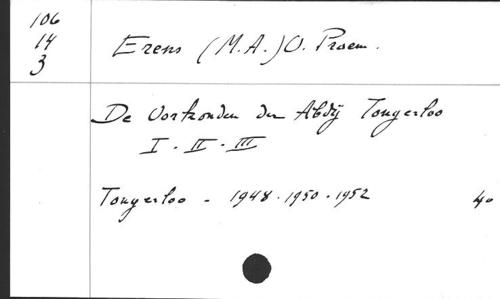 106
14
3
Erens (M.A.) O. Praem.
De Oorkonden der Abdij Tongerloo
I. II. III
Tongerloo - 1948. 1950. 1952 40